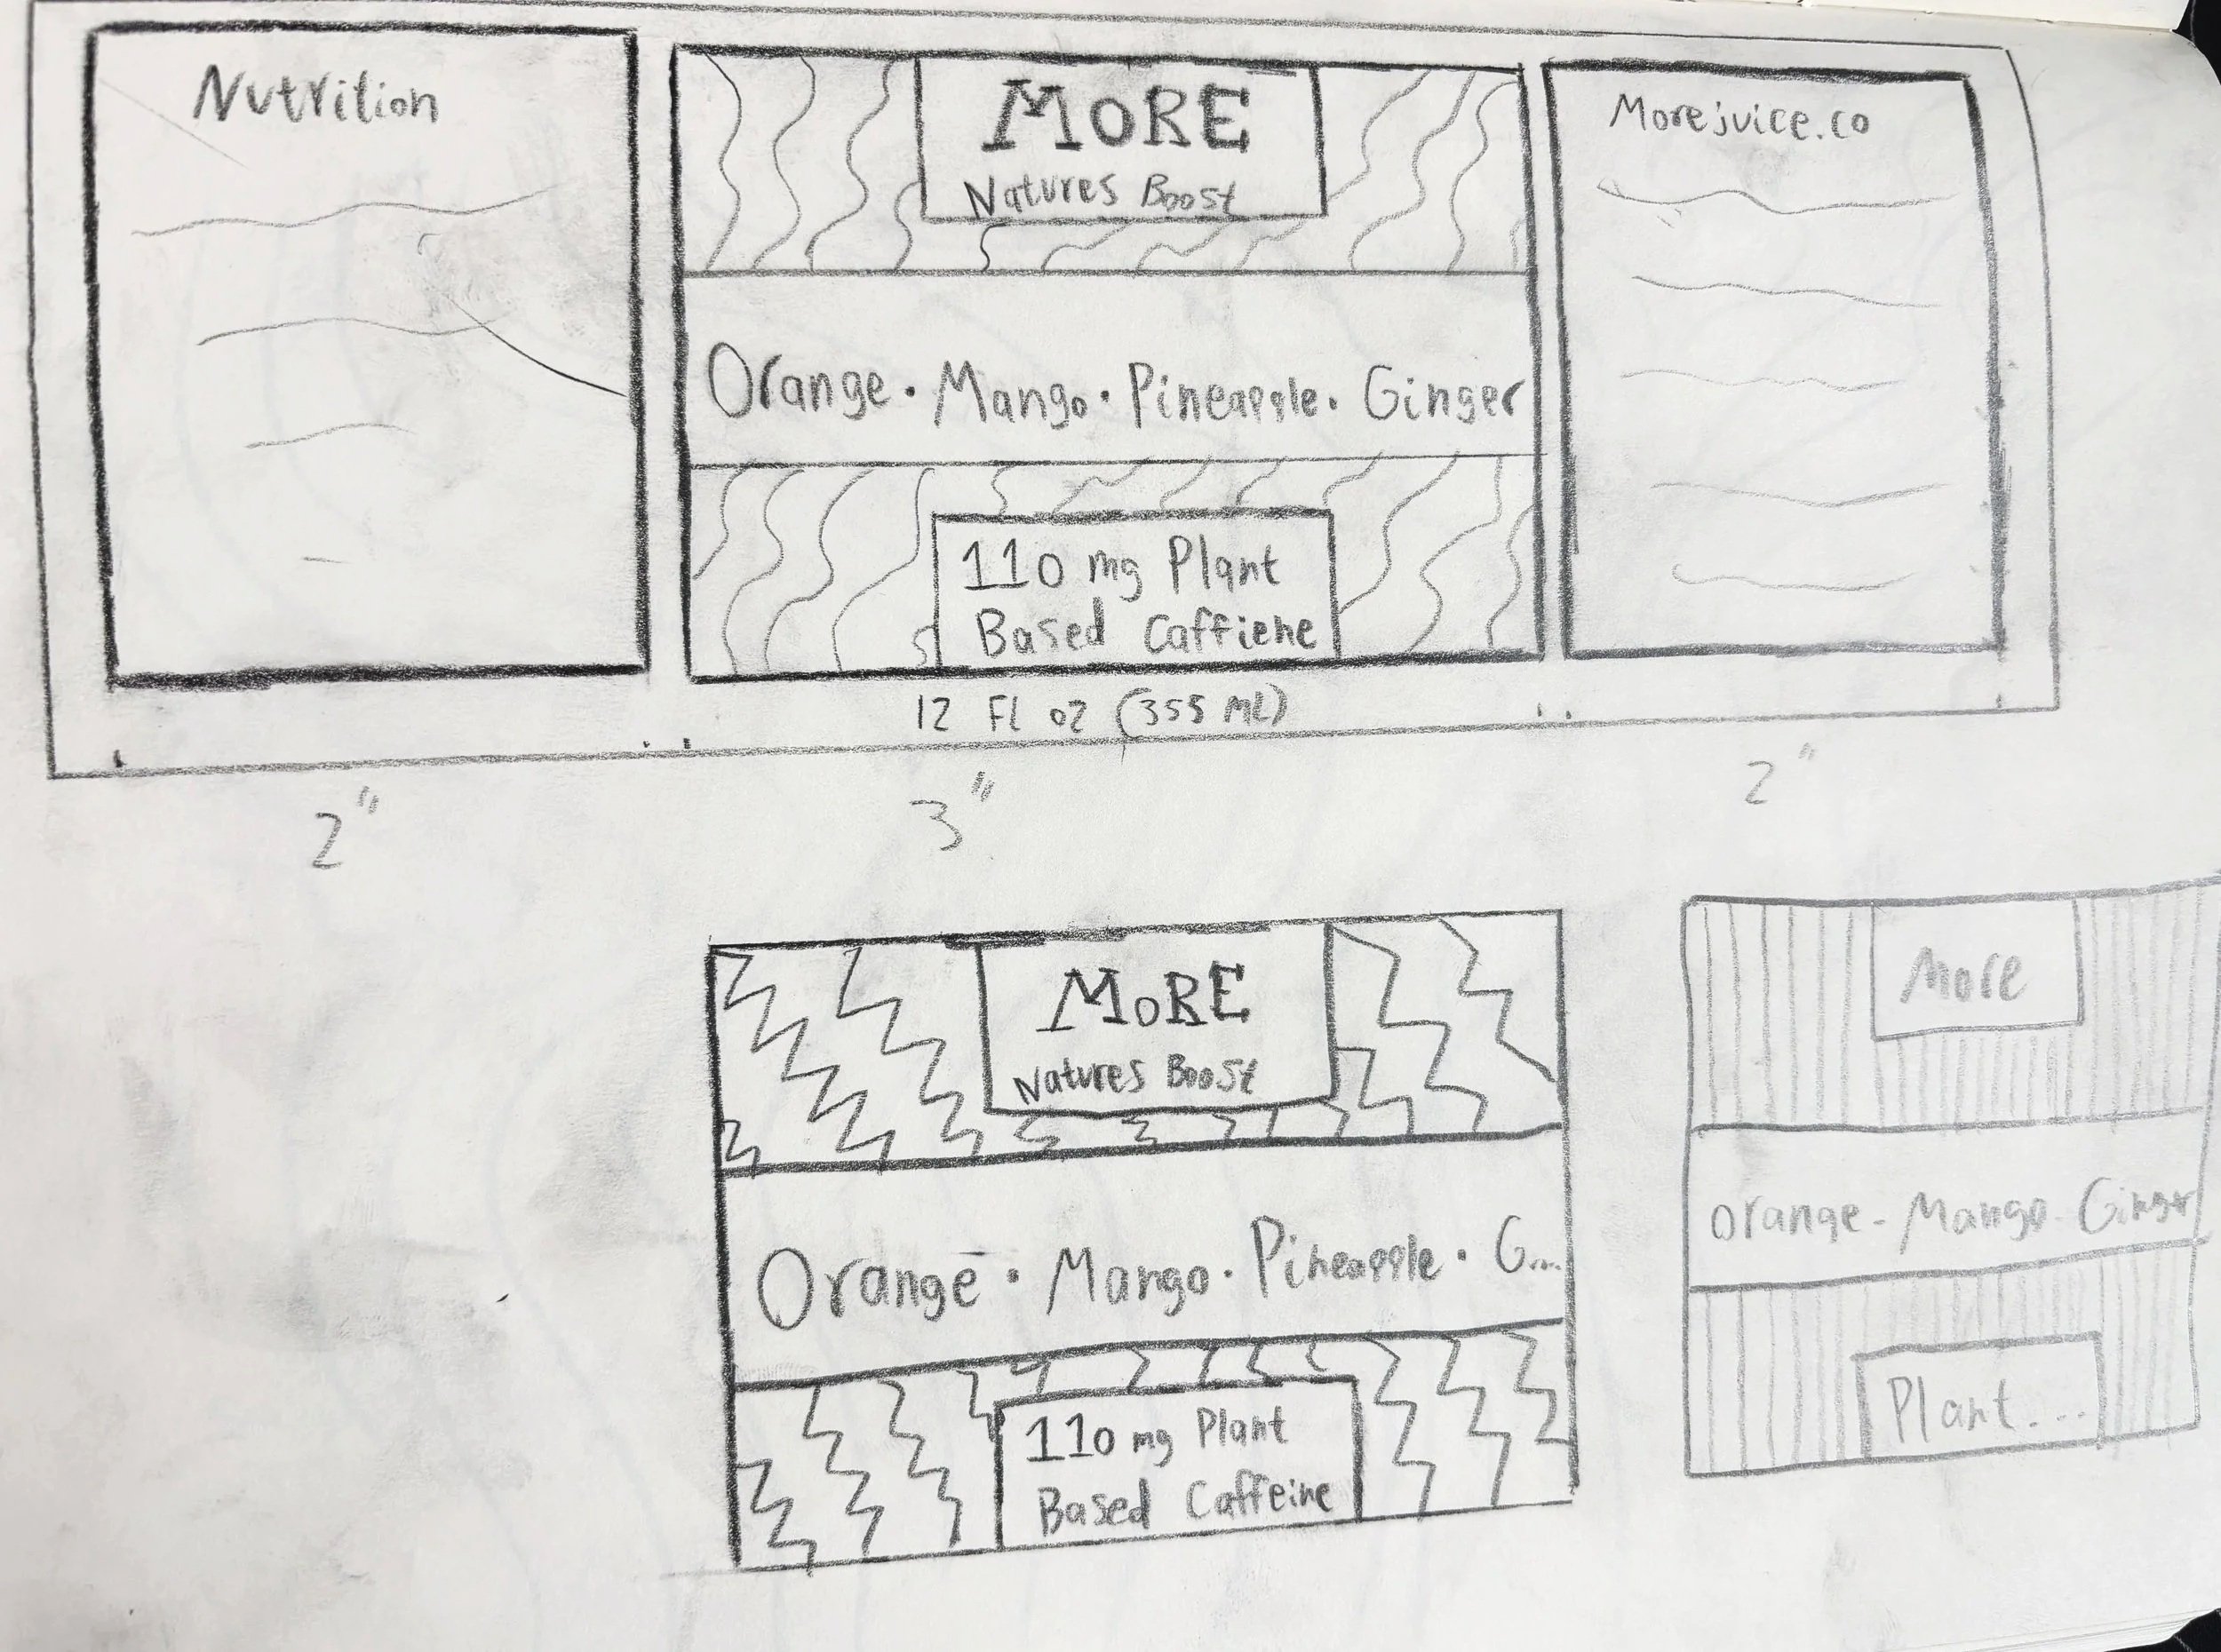 Nutrition
MORE
Natures Boost
Orange • Mango • Pineapple • Ginger
110 mg Plant
Based Caffiene
12 Fl oz (355 ML)
Morejuice.co
2"
3"
2"
MORE
Natures Boost
Orange • Mango • Pineapple • G...
110 mg Plant
Based Caffeine
More
Orange - Mango - Ginger
Plant....